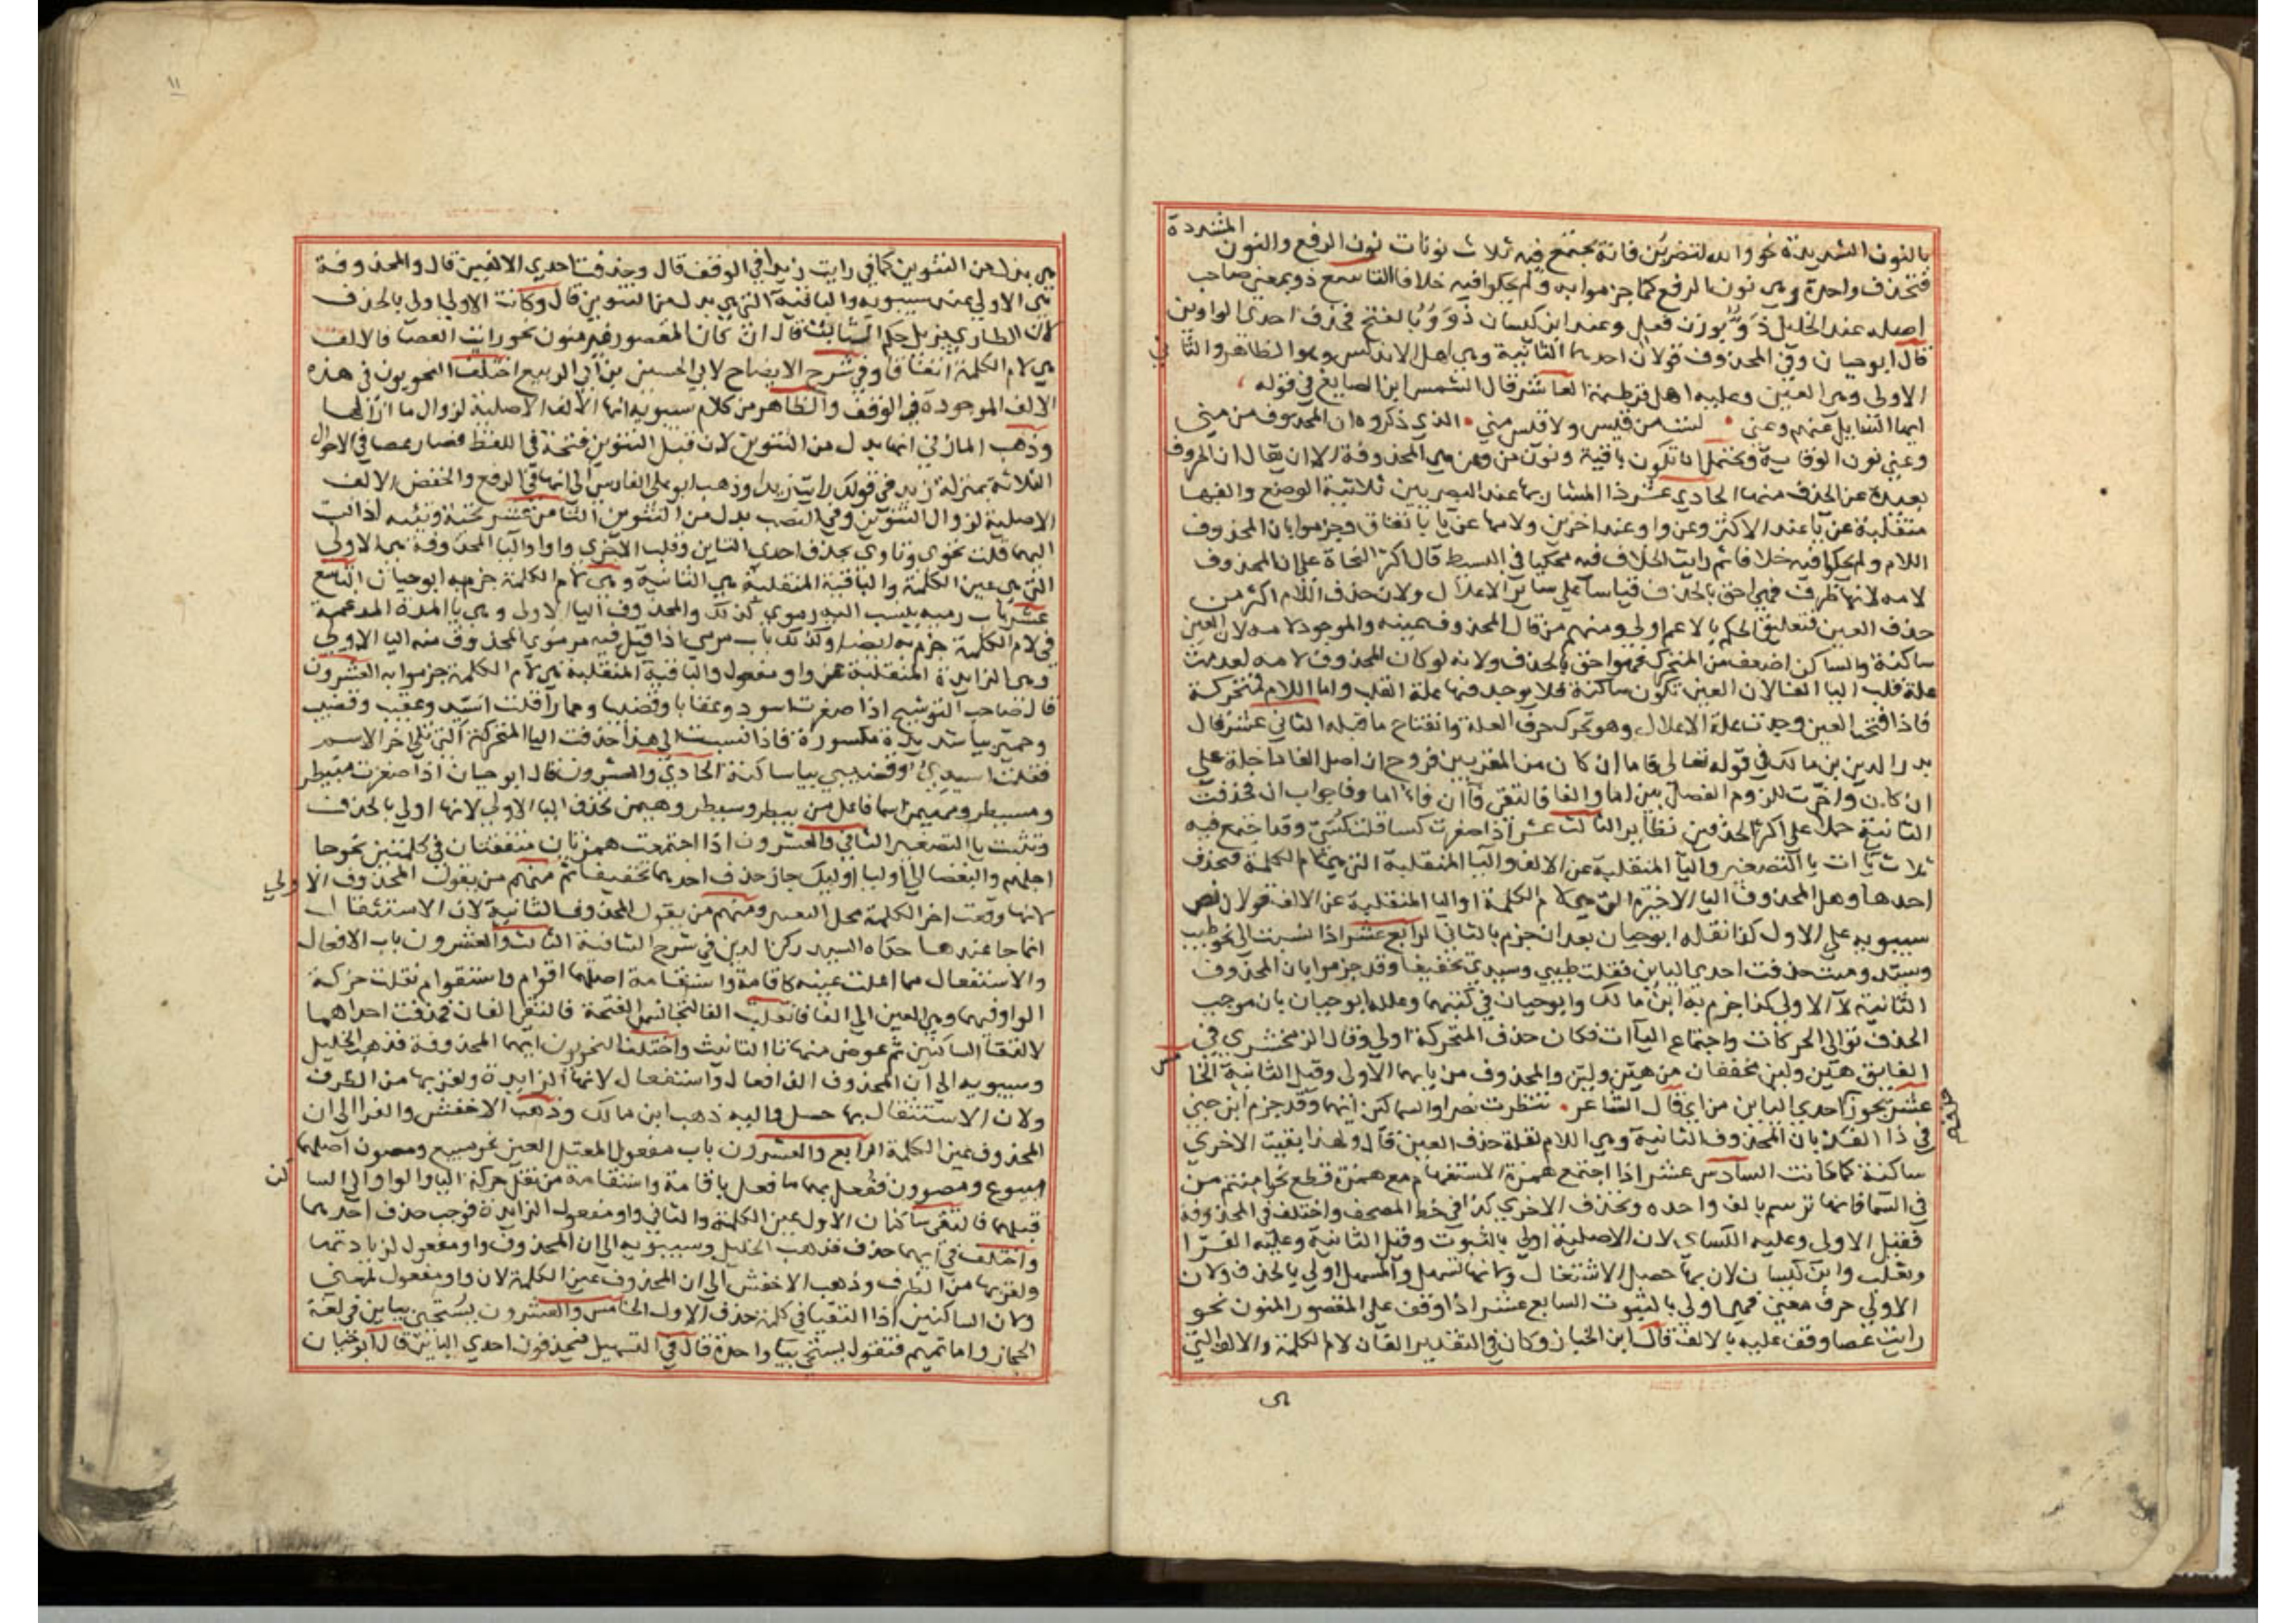 المشددة
بالنون الشديدة نحو والله لتضربن فانه يجتمع فيه ثلاث نونات نون الرفع والنون
فتحذف واحدة وهي نون الرفع كما جزموا به ولم يحكوا فيه خلافا التاسع ذو بمعني صاحب
اصله عند الخليل ذوو بوزن فعل وعند ابن كيسان ذوو بالفتح فحذف احدي الواوين
قال ابو حيان وفي المحذوف قولان احدهما الثانية وهي اهل الاندلس وهو الظاهر والثاني
الاولي وهي العين وعليه اهل قرطبة العاشر قال الشمس ابن الصايغ في قوله
ايها السايل عنهم وعني لست من قيس ولا قيس مني الذي ذكروه ان المحذوف من مني
وعني نون الوقاية ويحتمل ان تكون باقية ونون من وعن هي المحذوفة الا ان يقال ان الحروف
بعيدة عن الحذف منها الحادي عشر ذا المشار بها عند البصريين ثلاثية الوضع والفها
منقلبة عن يا عند الاكثر وعن واو عند اخرين ولامها عن يا باتفاق وجزموا بان المحذوف
اللام ولم يحكوا فيه خلافا ثم رايت الخلاف فيه محكيا في البسيط قال اكثر النحاة علي ان المحذوف
لامه لانها طرف فهي احق بالحذف قياسا علي ساير الاعلال ولان حذف اللام اكثر من
حذف العين فتعليق الحكم بالاعم اولي ومنهم من قال المحذوف عينه والموجود لامه لان العين
ساكنة والساكن اضعف من المتحرك فهو احق بالحذف ولانه لو كان المحذوف لامه لعدمت
علة قلب اليا الفا لان العين تكون ساكنة فلا يوجد فيها علة القلب واما اللام فمتحركة
فاذا فتحنا العين وجدت علة الاعلال وهو تحرك حرف العلة وانفتاح ما قبله الثاني عشر قال
بدر الدين بن مالك في قوله تعالي فاما ان كان من المقربين فروح ان اصل الفا داخلة علي
ان كان واخرت للزوم الفصل بين اما والفا فالتقي فاان فاء اما وفا جواب ان فحذفت
الثانية حملا علي اكثر الحذفين نظاير الثالث عشر اذا صغرت كسا قلت كسي وقد اجتمع فيه
ثلاث يآات يا التصغير واليا المنقلبة عن الالف واليا المنقلبة التي هي لام الكلمة فتحذف
احدها وهل المحذوف اليا الاخيرة التي هي لام الكلمة او اليا المنقلبة عن الالف قولان نص
سيبويه علي الاول كذا نقله ابو حيان بعد ان جزم بالثاني الرابع عشر اذا نسبت الي نحو طيب
وسيد وميت حذفت احدي اليايين فقلت طيبي وسيدي تخفيفا وقد جزموا بان المحذوف
الثانية لا الاولي كذا جزم به ابن مالك وابو حيان في كتبهما وعلله ابو حيان بان موجب
الحذف توالي الحركات واجتماع اليآات فكان حذف المتحركة اولي وقال الزمخشري في
الفايق هين ولين مخففان من هين ولين والمحذوف من يايهما الاولي وقيل الثانية الخامس
عشر يجوز حذف احدي اليايين من اي قال الشاعر تنظرت نصرا والسماكين ايهما وقد جزم ابن جني
في ذا القد بان المحذوف الثانية وهي اللام لقلة حذف العين قال ولهذا بقيت الاخري
ساكنة كما كانت السادس عشر اذا اجتمع همزة الاستفهام مع همزة قطع نحو اامنتم من
في السما فانها ترسم بالف واحده وتحذف الاخري كذا في خط المصحف واختلف في المحذوفة
فقيل الاولي وعليه الكساي لان الاصلية اولي بالثبوت وقيل الثانية وعليه الفرا
وثعلب وابن كيسان لان بها حصل الاستثقال ولانها تسهل والمسهل اولي بالحذف ولان
الاولي حرف معني فهي اولي بالثبوت السابع عشر اذا وقف علي المقصور المنون نحو
رايت عصا وقف عليه بالالف قال ابن الخباز وكان في التقدير الفان لام الكلمة والالف التي
هي
١١
هي بدل من التنوين كما في رايت زيدا في الوقف قال وحذفت احدي الالفين قال والمحذوفة
هي الاولي عند سيبويه والباقية التي هي بدل من التنوين قال وكانت الاولي اولي بالحذف
لان الطاري يزيل حكم الثابت قال ان كان المقصور غير منون نحو رايت العصا فالالف
هي لام الكلمة اتفاقا وفي شرح الايضاح لابي الحسين بن ابي الربيع اختلف النحويون في هذه
الالف الموجودة في الوقف والظاهر من كلام سيبويه انها الالف الاصلية لزوال ما ازالها
وذهب المازني انها بدل من التنوين لان قبل التنوين فتحة في اللفظ فصار عصا في الاحوال
الثلاثة بمنزلة زيد في قولك رايت زيدا وذهب ابو علي الفارسي الي انها في الرفع والخفض الالف
الاصلية لزوال التنوين وفي النصب بدل من التنوين الثامن عشر تحية وثيه اذا نسبت
اليهما قلت تحوي وثاوي بحذف احدي اليايين وقلب الاخري واوا واليا المحذوفة هي الاولي
التي هي عين الكلمة والباقية المنقلبة هي الثانية وهي لام الكلمة جزم به ابو حيان التاسع
عشر باب رميه ينسب اليه رموي كذلك والمحذوف اليا الاولي وهي يا المدة المدغمة
في لام الكلمة جزم به ايضا وكذلك باب مرمي اذا قيل فيه مرموي المحذوف منه اليا الاولي
وهي الزايدة المنقلبة عن واو مفعول والباقية المنقلبة هي لام الكلمة جزموا به العشرون
قال صاحب الترشيح اذا صغرت اسود وعقابا وقضيبا وحمارا قلت اسيد وعقيب وقضيب
وحمير بيا شديدة مكسورة فاذا نسبت الي هذا حذفت اليا المتحركة التي تلي اخر الاسم
فقلت اسيدي وقضيبي بيا ساكنة الحادي والعشرون قال ابو حيان اذا صغرت مبيطر
ومسيطر ومهيمن اسما فاعل من بيطر وسيطر وهيمن تحذف اليا الاولي لانها اولي بالحذف
وتثبت يا التصغير الثاني والعشرون اذا اجتمعت همزتان متفقتان في كلمتين نحو جا
اجلهم والبغضا الي اوليا اوليك جاز حذف احدهما تخفيفا ثم منهم من يقول المحذوف الاولي
لانها وقعت اخر الكلمة محل التغيير ومنهم من يقول المحذوف الثانية لان الاستثقال
انما جا عندها حكاه السيد ركن الدين في شرح الشافية الثالث والعشرون باب الافعال
والاستفعال مما اعلت عينه كاقامة واستقامة اصلهما اقوام واستقوام نقلت حركة
الواو فيهما وهي العين الي الفا فانقلبت الفا لتجانس الفتحة فالتقي الفان فحذفت احداهما
لالتقا الساكنين ثم عوض منها تا التانيث واختلف النحويون ايهما المحذوفة فذهب الخليل
وسيبويه الي ان المحذوف الف افعال واستفعال لانها الزايدة ولقربها من الطرف
ولان الاستثقال بها حصل واليه ذهب ابن مالك وذهب الاخفش والفرا الي ان
المحذوف عين الكلمة الرابع والعشرون باب مفعول المعتل العين نحو مبيع ومصون اصلهما
مبيوع ومصوون ففعل بهما ما فعل باقامة واستقامة من نقل حركة اليا والواو الي الساكن
قبلهما فالتقي ساكنان الاول عين الكلمة والثاني واو مفعول الزايدة فوجب حذف احدهما
واختلف في ايهما حذف فذهب الخليل وسيبويه الي ان المحذوف واو مفعول لزيادتها
ولقربها من الطرف وذهب الاخفش الي ان المحذوف عين الكلمة لان واو مفعول لمعني
ولان الساكنين اذا التقيا في كلمة حذف الاول الخامس والعشرون يستحيي بيايين في لغة
الحجاز واما تميم فتقول يستحي بيا واحدة قال في التسهيل فيحذفون احدي اليايين قال ابو حيان